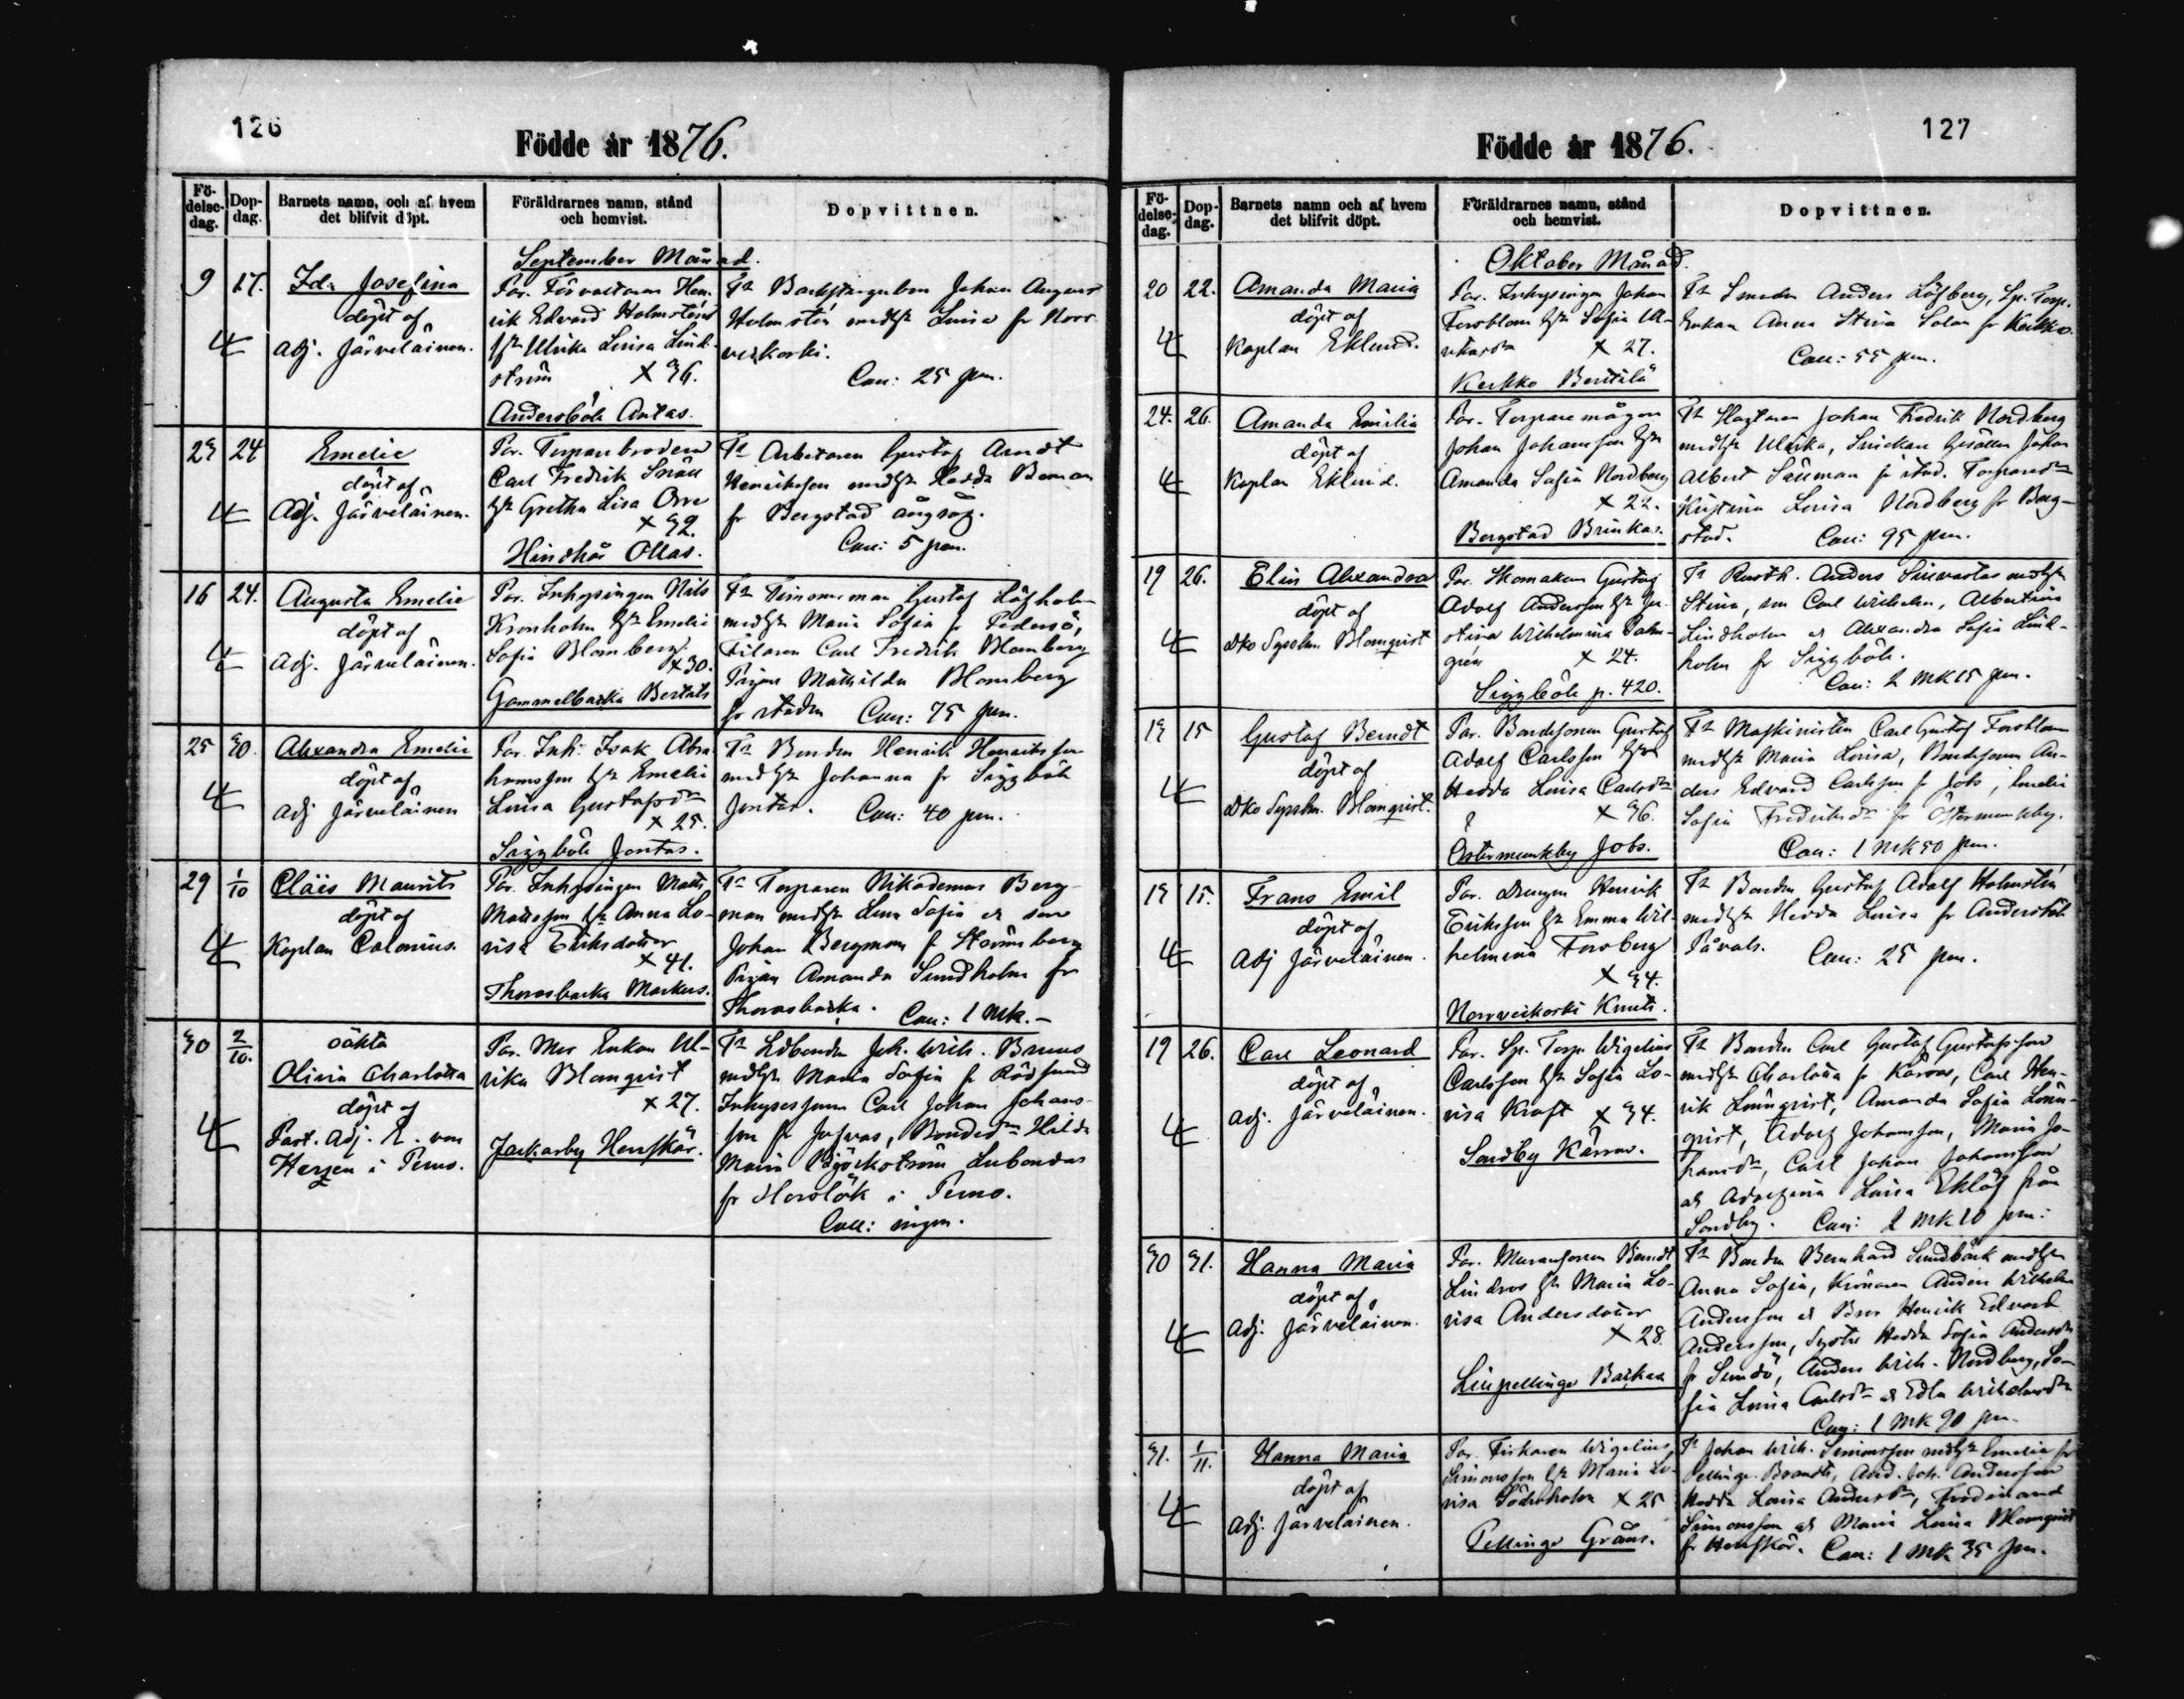 126
Födde år 1876.
Födelsedag.
Dopdag.
Barnets namn, och af hvem det blifvit döpt.
Föräldrarnes namn, stånd och hemvist.
Dopvittnen.
September Månad.
9 17. Ida Josefina
döpt af
Adj. Järveläinen.
Par. Förvaltaren Hen-
rik Edvard Holmstén
hr Ulrika Lovisa Lind-
ström × 36.
Andersböle Antas.
Tr Johan August
Holmstén medhr Lovisa fr Norr-
veckoski.
Can: 25 pen.
23 24 Emelie
döpt af
Adj. Järveläinen.
Par. Torparbrodern
Carl Fredrik Snäll
hr Gretha Lisa Orre
× 32.
Hindhår Ollas.
Tr Arbetaren Gustaf Arndt
Henriksson medhr Hedda Boman
fr Bergstad ångsåg.
Can: 5 pen.
16 24. Augusta Emelie
döpt af
Adj. Järveläinen.
Par. Inhysingen Nils
Kronholm hr Emelie
Sofia Blomberg
× 30.
Gammelbacka Bertats
Tr Timmerman Gustaf Löfholm
medhr Maria Sofia fr
Filaren Carl Fredrik Blomberg
Pigan Mathilda Blomberg
fr staden Can: 75 pen.
25 30. Alexandra Emelie
döpt af
Adj Järveläinen
Par. Inh: Isak Abra-
hamsson hr Emelie
Lovisa Gustafsdr
× 25.
Siggböle Jontas.
Tr Bonden Henrik Henriksson
medhr Johanna fr Siggböle
Jontas. Can: 40 pen.
29 1/10 Claës Maurits
döpt af
Kaplan Calonius.
Par. Inhysingen Matts
Mattsson hr Anna Lo-
visa Eriksdotter
× 41.
Thorasbacka Markus.
Tr Torparen Nikodemus Berg-
man medhr Lena Sofia & son
Johan Bergman fr Strömsberg
Pigan Amanda Sundholm fr
Thorasbacka. Can: 1 Mk.-
30 2/10. oäkta
Olivia Charlotta
döpt af
Past. Adj. E. von
Hertzen i Perno.
Par. Enkan Ul-
rika Blomqvist
× 27.
Jackarby Herrskär.
Tr Joh. Wilh. Bruus
medhr Maria Sofia fr Rödsund
Inhysessonen Carl Johan Johans-
son fr Jofvas, Bondedr Hilda
Maria Björkström
fr Horslök i Perno.
Can: ingen.
127
Födde år 1876.
Födelsedag.
Dopdag.
Barnets namn och af hvem det blifvit döpt.
Föräldrarnes namn, stånd och hemvist.
Dopvittnen.
Oktober Månad.
20 22. Amanda Maria
döpt af
Kaplan Eklund.
Par. Inhysingen Johan
Forsblom hr Sofia Ul-
riksdr × 27.
Kerkko Beritilä
Tr Smeden Anders Löfberg, Sp. Torp.
Enkan Anna Stina fr Kerkko.
Can: 55 pen.
24. 26. Amanda Emilia
döpt af
Kaplan Eklund.
Par. Torparemågen
Johan Johansson hr
Amanda Sofia Nordberg
× 22.
Bergstad Brinkas.
Tr Johan Fredrik Nordberg
medhr Ulrika, Snickare Gesällen Johan
Albert Sällman fr stad. Torparedr
Kristina Lovisa Nordberg fr Berg-
stad. Can: 95 pen.
19 26. Elin Alexandra
döpt af
Dko Sysslom. Blomqvist
Par. Skomakaren Gustaf
Adolf Andersson hr Ju-
stina Wilhelmina Palm-
gren × 24.
Siggböle p. 420.
Tr Rusth. Anders medhr
Stina, son Carl Wilhelm, Albertina
Lindholm & Alexandra Sofia Lind-
holm fr Siggböle.
Can: 2 Mk 15 pen.
13 15 Gustaf Berndt
döpt af
Dko Sysslm. Blomqvist.
Par. Bondesonen Gustaf
Adolf Carlsson hr
Hedda Lovisa Carlsdr
× 36.
Östermunkby Jobs.
Tr Maskinisten Carl Gustaf Forsblom
medhr Maria Lovisa, Bondesonen An-
ders Edvard Carlsson fr Jobs, Emelie
Sofia Fredriksdr fr Östermunkby.
Can: 1 Mk 50 pen.
13 15. Frans Emil
döpt af
Adj Järveläinen.
Par. Drengen Henrik
Eriksson hr Emma Wil-
helmina Forsberg
× 34.
Norrveckoski Knuts.
Tr Bonden Gustaf Adolf Holmstén
medhr Hedda Lovisa fr Andersböle
Påvals. Can: 25 pen.
19 26. Carl Leonard
döpt af
Adj. Järveläinen.
Par. Sp. Torp. Wigelius
Carlsson hr Sofia Lo-
visa Kraft × 34.
Sondby Kärras.
Tr Bonden Carl Gustaf Gustafsson
medhr Charlotta fr Kärras, Carl Hen-
rik Lönnqvist, Amanda Sofia Lönn-
qvist, Adolf Johansson, Maria Jo-
hansdr, Carl Johan Johansson
& Adolfina Lovisa Eklöf från
Sondby. Can: 2 Mk 10 pen:
30 31. Hanna Maria
döpt af
Adj. Järveläinen.
Par. Muraresonen Berndt
Lindros hr Maria Lo-
visa Andersdotter
× 28
Lillpellinge Backas
Tr Bonden Bernhard Sundbäck medhr
Anna Sofia, Anders Wilhelm
Andersson & Bror Henrik Edvard
Andersson, Syster Hedda Sofia Andersdr
fr Sundö, Anders Wilh. Nordberg, So-
fia Lovisa Carlsdr & Edla
Can: 1 Mk 90 pen.
31. 1/11. Hanna Maria
döpt af
Adj. Järveläinen.
Par. Fiskaren Wigelius
Simonsson hr Maria Lo-
visa Söderholm × 25
Pellinge Gräns.
Tr Johan Wilh. Simonsson medhr Emelie fr
Pellinge Brandts, And. Joh. Andersson
Hedda Lovisa Andersdr, Ferdinand
Simonsson & Maria Lovisa Blomqvist
fr Herrskär. Can: 1 Mk 35 pen.